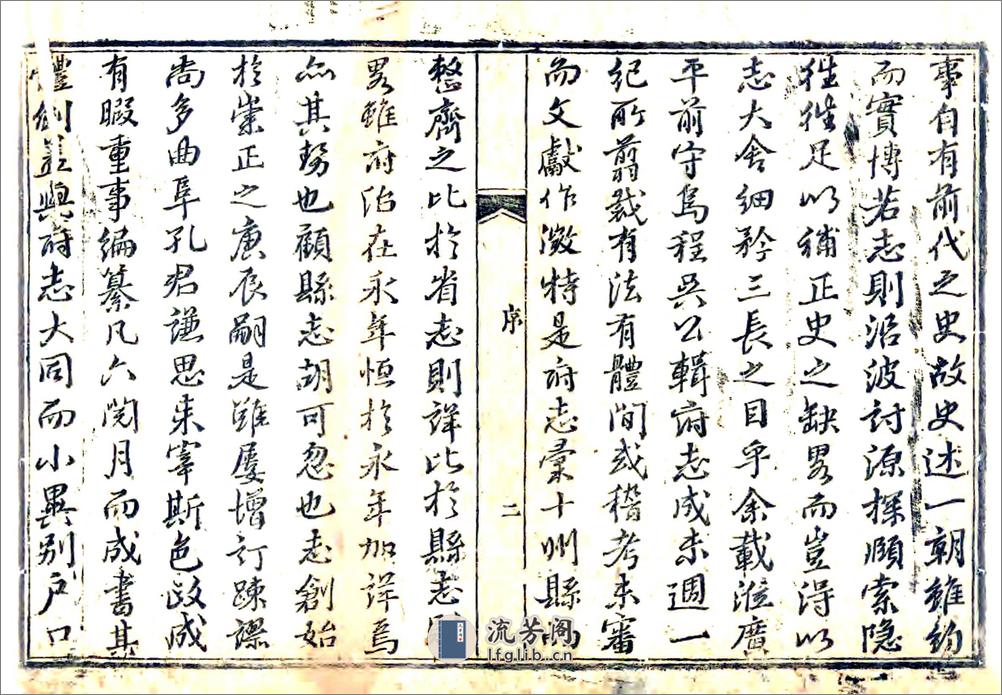 事自有前代之史故史述一朝雖約
而實博若志則沿波討源探頤索隐
徃徃足以補正史之缺畧而豈得以
志大舍細矜三長之目乎余載涖廣
平前守烏程吳公輯府志成未週一
紀所剪裁有法有體間或稽考未審
而文獻作徴特是府志彙十州縣
序
二
整齊之比於省志則詳比於縣志
畧雖府治在永年恒於永年加詳焉
亦其勢也顧縣志胡可忽也志創始
於崇正之庚辰嗣是雖屢增訂踈謬
尚多曲阜孔君謙思来宰斯邑政成
有暇重事編纂凡六閱月而成書其
體創並與府志大同而小異别户口
流芳阁
lfglib.cn